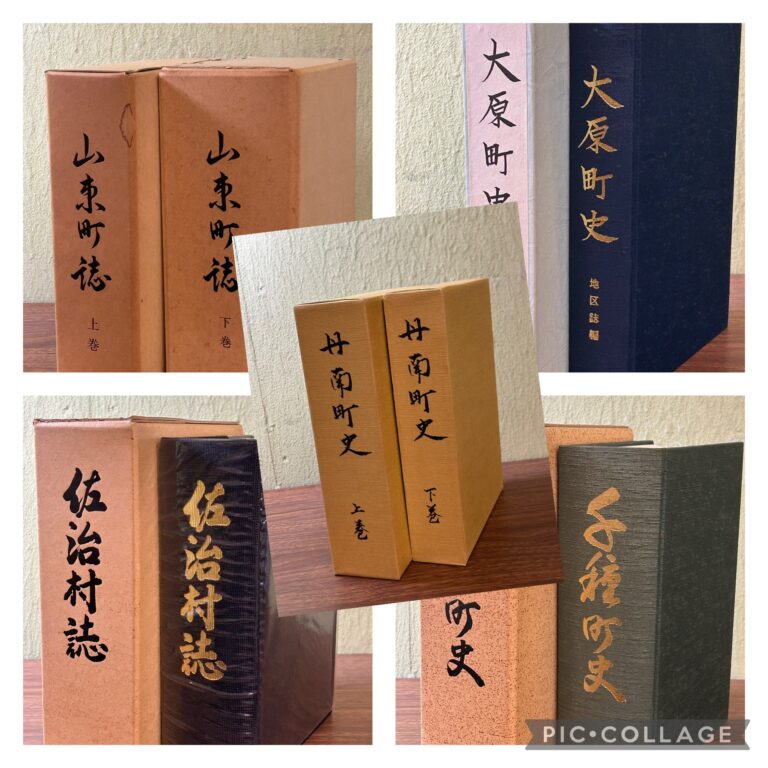 山東町誌
上巻
山東町誌
下巻
大原町史
大原町史
地区誌編
丹南町史
上巻
丹南町史
下巻
佐治村誌
佐治村誌
町史
千種町史
PIC•COLLAGE